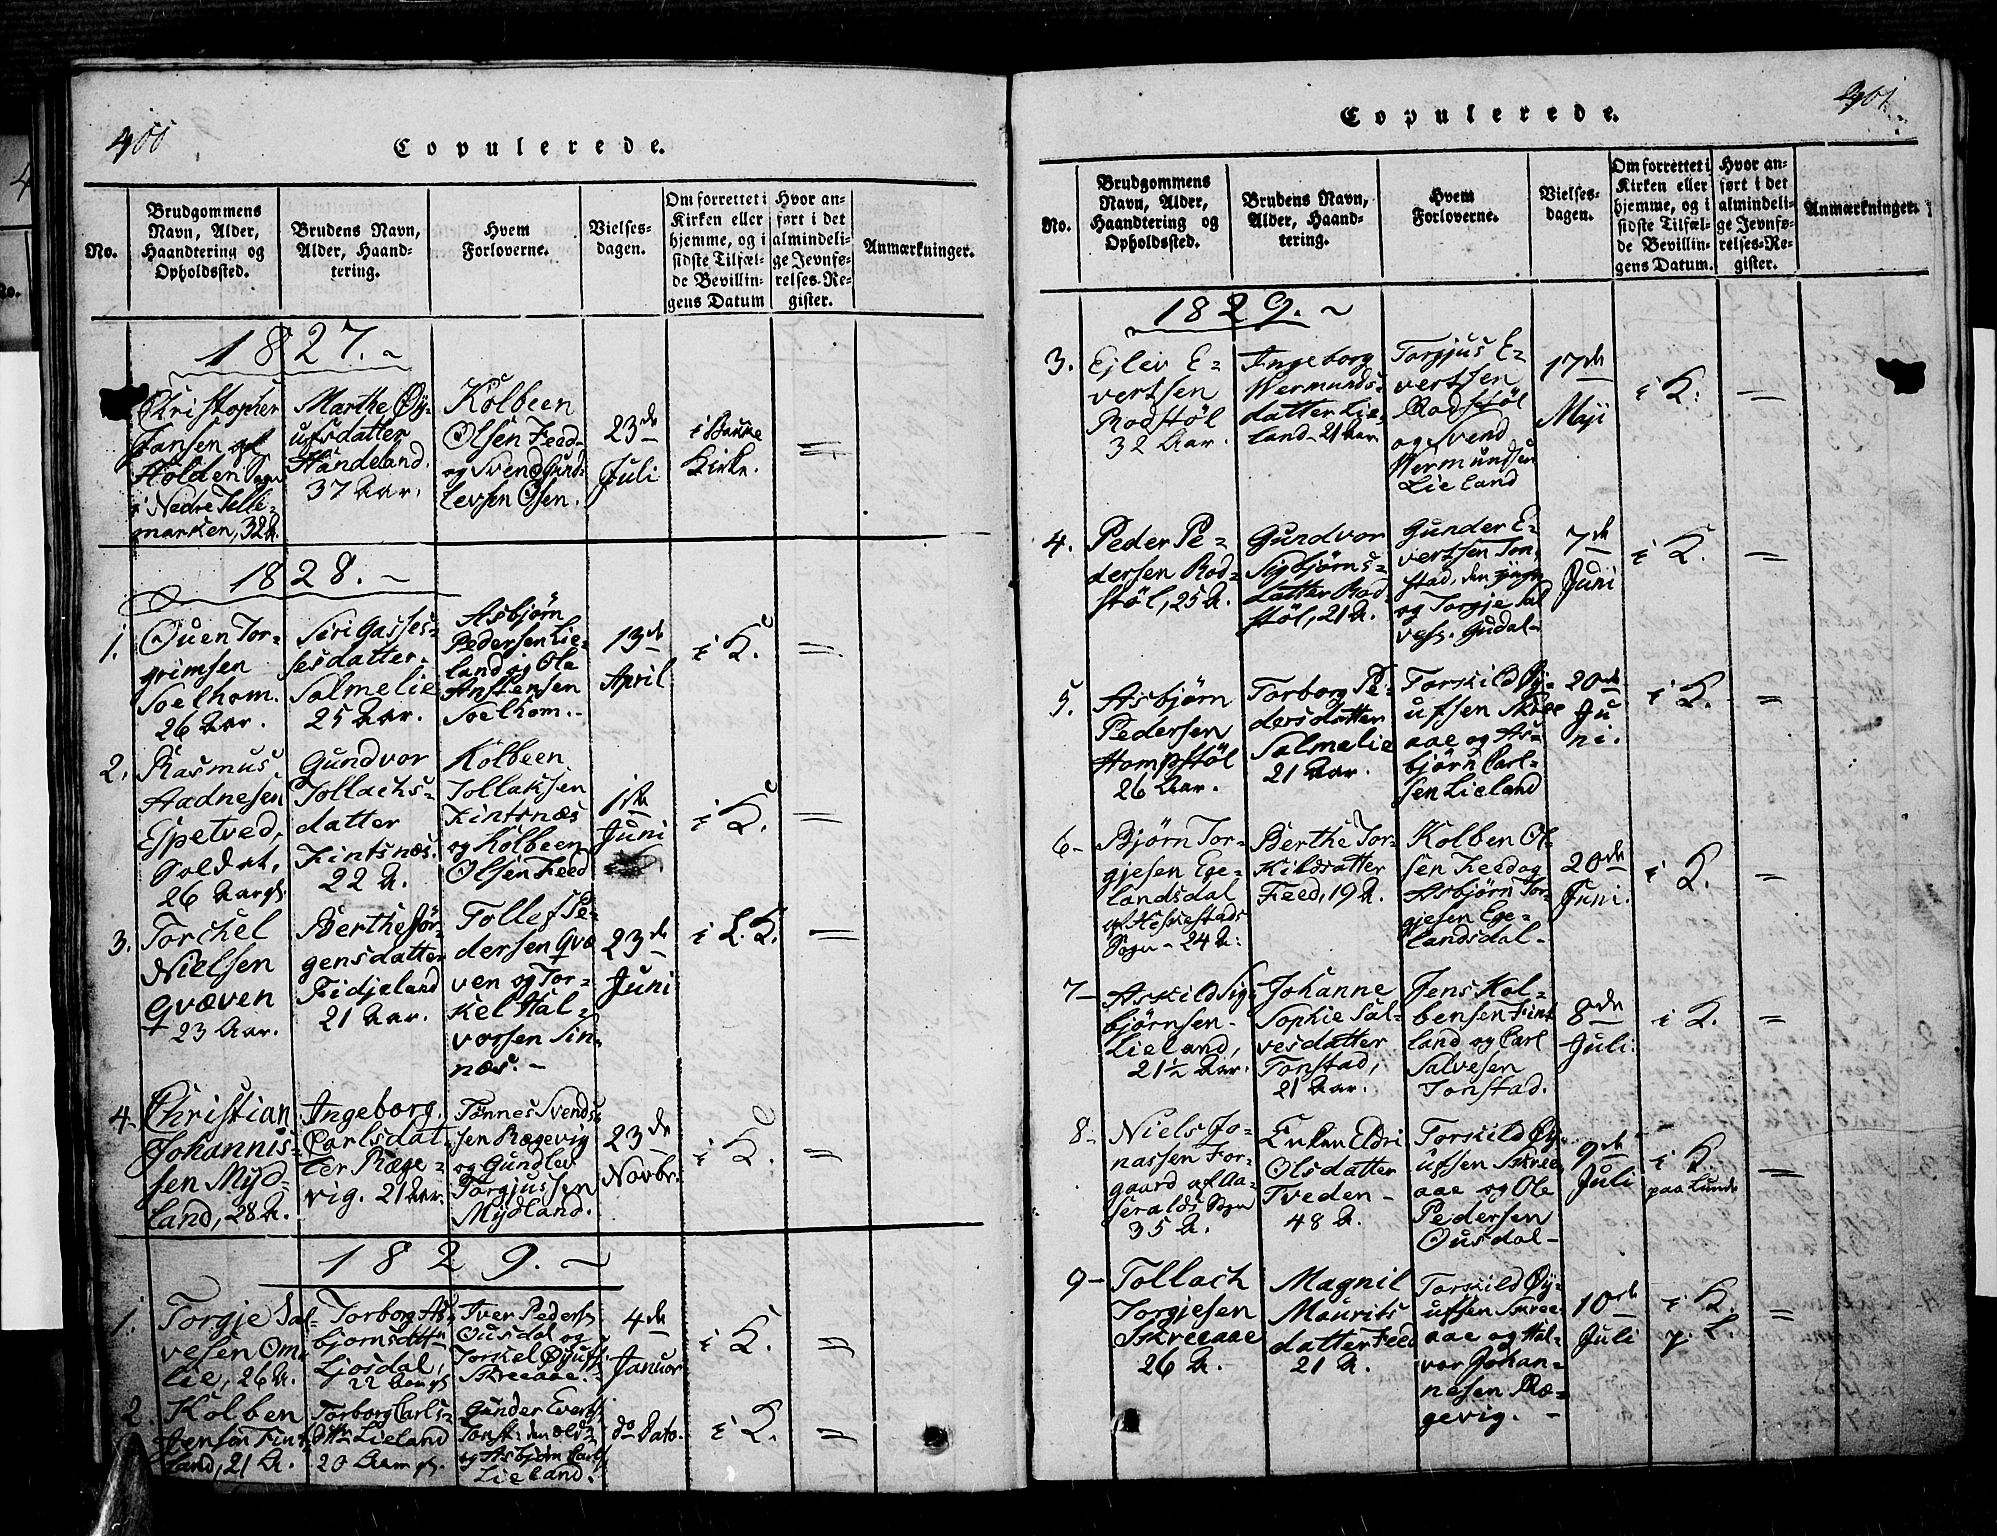 400
Copulerede.
No.
Brudgommens
Navn, Alder,
Haandtering og
Opholdssted.
Brudens Navn,
Alder, Haand-
tering.
Hvem
Forloverne.
Vielses-
dagen.
Om forrettet i
Kirken eller
hjemme, og i
sidste Tilfæl-
de Bevillin-
gens Datum
Hvor an-
ført i det
almindeli-
ge Jevnfø-
relses-Re-
gister.
Anmærkninger.
1827.
Christopher
Jansen af
Holden Sogn
i Nedre Telle-
marken, 32 A.
Marthe Øy-
ufsdatter
Haandeland.
37 Aar.
Kolbeen
Olsen Feed
og Svend Gund-
levsen Osen.
23de
Juli
i Bakke
Kirke.
=
1828.
1.
Ouen Tor-
grimsen
Soelhom.
26 Aar.
Siri Gasses-
sesdatter
Salmelie
25 Aar.
Asbjørn
Pedersen Lie-
land og Ole
Anstensen
Soelhom.
13de
April
i K.
=
2.
Rasmus
Aadnesen
Espetved,
Soldat,
26 Aar gl.
Gundvor
Tollachs-
datter
Fintsnæs.
22 A.
Kolbeen
Tollaksen
Fintsnæs
og Kolbeen
Olsen Feed
1ste
Juni
i K.
=
3.
Torchel
Nielsen
Qvæven
23 Aar.
Berthe Jør-
gensdatter
Fidjeland
21 Aar.
Tollef Pe-
dersen Qvæ
ven og Tor-
kel Hal-
vorsen Sin-
næs.
23de
Juni
i L. K.
=
4.
Christian
Johannis-
sen Myd-
land, 28 A.
Ingeborg
Carlsdat-
ter Ræge-
vig. 21 Aar.
Tønnes Svends-
sen Rægevig
og Gundlev
Torgjussen
Mydland.
23de
Novbr.
i K.
=
1829.
1.
Torgje Sal-
vesen Om-
lie, 26 A.
Torborg As-
bjørnsdattr
Ljosdal,
22 Aar gl.
Iver Peders
Ousdal og
Torkel Øyufs.
Skreeaae.
4de
Januar
i K.
=
2.
Kolben
Jensen Fint-
land, 21 A.
Torborg Carls-
dttr Lieland
20 Aar gl.
Gunder Everts.
Tonst: den Eldr.
og Asbjørn Carls
Lieland.
do Dato.
i K.
=
401
Copulerede.
No.
Brudgommens
Navn, Alder,
Haandtering og
Opholdssted.
Brudens Navn,
Alder, Haand-
tering.
Hvem
Forloverne.
Vielses-
dagen.
Om forrettet i
Kirken eller
hjemme, og i
sidste Tilfæl-
de Bevillin-
gens Datum.
Hvor an-
ført i det
almindeli-
ge Jevnfø-
relses-Re-
gister.
Anmærkninger.
1829.
3.
Ejlev E-
vertsen
Rodstøl
32 Aar.
Ingeborg
Wermunds-
datter Lie-
land 21 Aar
Torgjus E-
vertsen
Rodstøl
og Svend
Wermundsen
Lieland
17de
Maji
i K.
=
4.
Peder Pe-
dersen Rod-
støl, 25 A.
Gundvor
Sigbjørns-
datter Rod-
støl, 21 A.
Gunder E-
vertsen Ton-
stad, den yngre
og Torgje Sal
ves. Gudal
7de
Juni
i K.
=
5.
Asbjørn
Pedersen
Hompstøl
26 Aar.
Torborg Pe-
dersdatter
Salmelie
21 Aar.
Torskild Øy-
ufsen Skree
aae og As-
bjørn Carl-
sen Lieland
20de
Ju
ni.
i K.
=
6
Bjørn Tor-
gjesen Ege-
landsdal
af Hegestads
Sogn - 24 A:
Berthe Tor-
kildsdatter
Feed, 19 A.
Kolben Ol-
sen Feed og
Asbjørn Tor-
gjesen Ege-
landsdal
20de
Juni.
i K.
=
7
Askild Sig-
bjørnsen
Lieland,
21½ Aar.
Johanne
Sophie Sal-
vesdatter
Tonstad,
21 Aar.
Jens Kol-
bensen Fint
land og Carl
Salvesen
Tonstad.
8de
Juli.
i K.
=
8
Niels Jo-
nassen For-
gaard af Aa-
seralds Sogn
35 A.
Enken Eldri
Olsdatter
Tveden
48 A.
Torskild Øy-
ufsen Skree-
aae og Ole
Pedersen
Ousdal
9de
Juli
i K.
paa Lunde
=
9
Tollach
Torgjesen
Skreeaae
26 A.
Magnil
Maurits
datter Feed
21 A.
Torskild Øy-
ufsen Skree-
aae og Hal-
vor Johan-
nesen Ræ-
gevig.
10de
Juli
i K.
p. L.
=